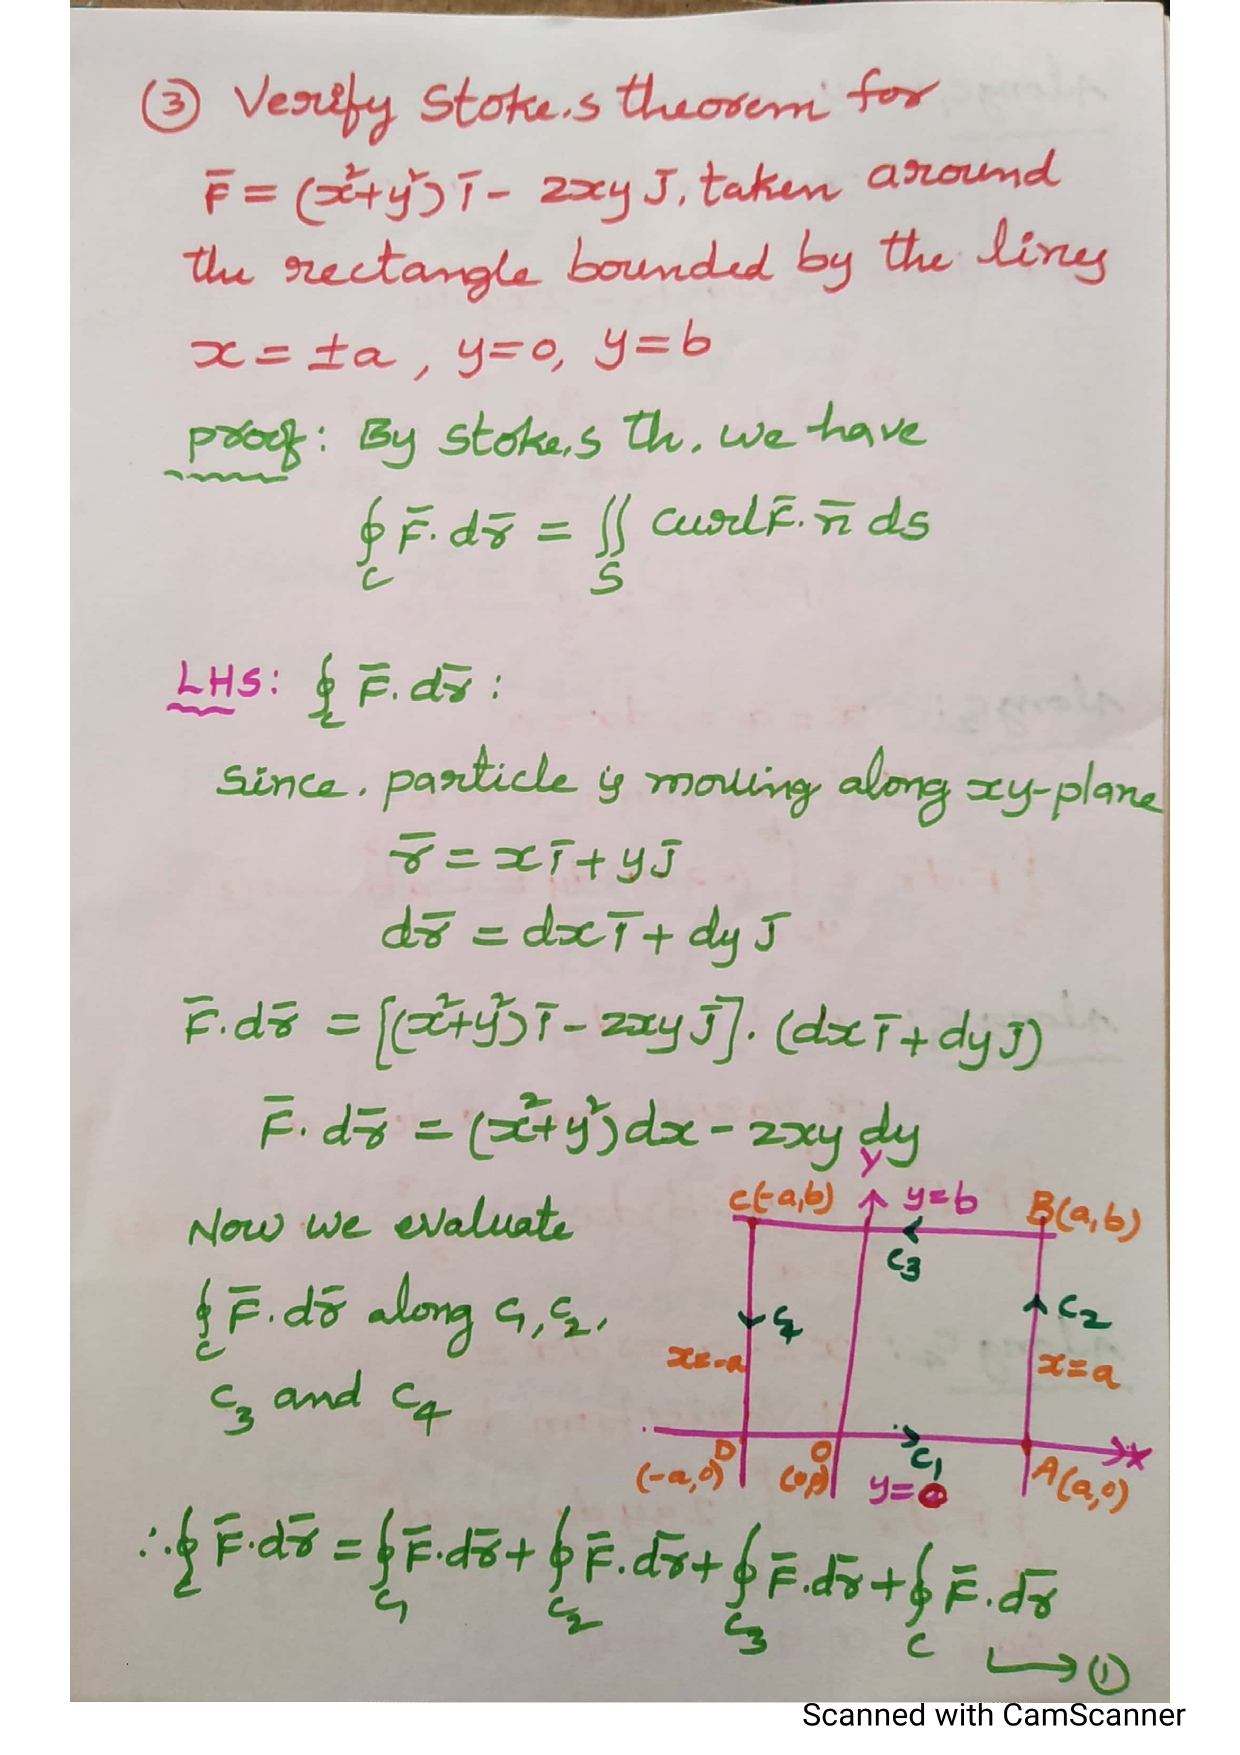 ③ Verify Stoke,s theorem for
F̄ = (x²+y²) ī - 2xy J̄, taken around
the rectangle bounded by the lines
x = ±a , y=0, y=b
proof: By Stoke,s Th, we have
∮_C F̄. dr̄ = ∬_S curl F̄. n̄ ds
LHS: ∮_C F̄. dr̄ :
Since, particle is moving along xy-plane
r̄ = x ī + y J̄
dr̄ = dx ī + dy J
F̄.dr̄ = [(x²+y²) ī - 2xy J̄]. (dx ī + dy J̄)
F̄. dr̄ = (x²+y²) dx - 2xy dy
Now we evaluate
∮_C F̄.dr̄ along C₁, C₂,
C₃ and C₄
Y
C(-a,b) y=b B(a,b)
C₃
C₄ C₂
x=-a x=a
D O C₁ X
(-a,0) (0,0) y=0 A(a,0)
∴ ∮_C F̄.dr̄ = ∮_C₁ F̄.dr̄ + ∮_C₂ F̄.dr̄ + ∮_C₃ F̄.dr̄ + ∮_C F̄.dr̄
→ ①
Scanned with CamScanner